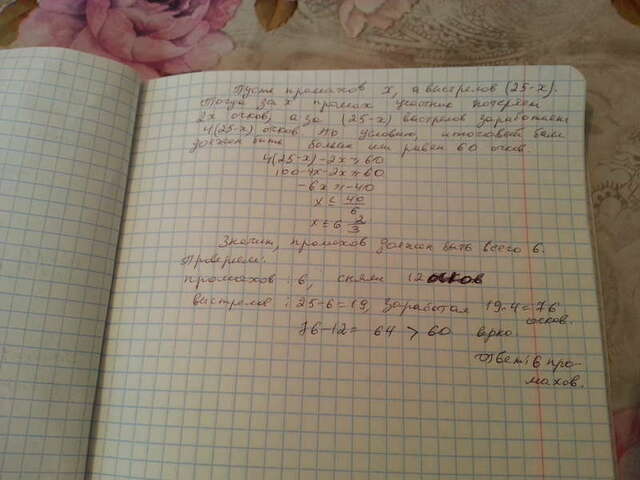 Пусть промахов x, а выстрелов (25-x).
Тогда за x промах участник потерял
2x очков, а за (25-x) выстрелов заработал
4(25-x) очков. По условию, итоговый балл
должен быть больше или равен 60 очков.
4(25-x)-2x≥60
100-4x-2x≥60
-6x≥-40
x≤ 40/6
x≤6 2/3
Значит, промахов должен быть всего 6.
Проверяем:
промахов: 6, сняли 12 очков
выстрелов: 25-6=19, заработал 19·4=76
очков.
76-12= 64 > 60 верно
Ответ: 6 про-
махов.